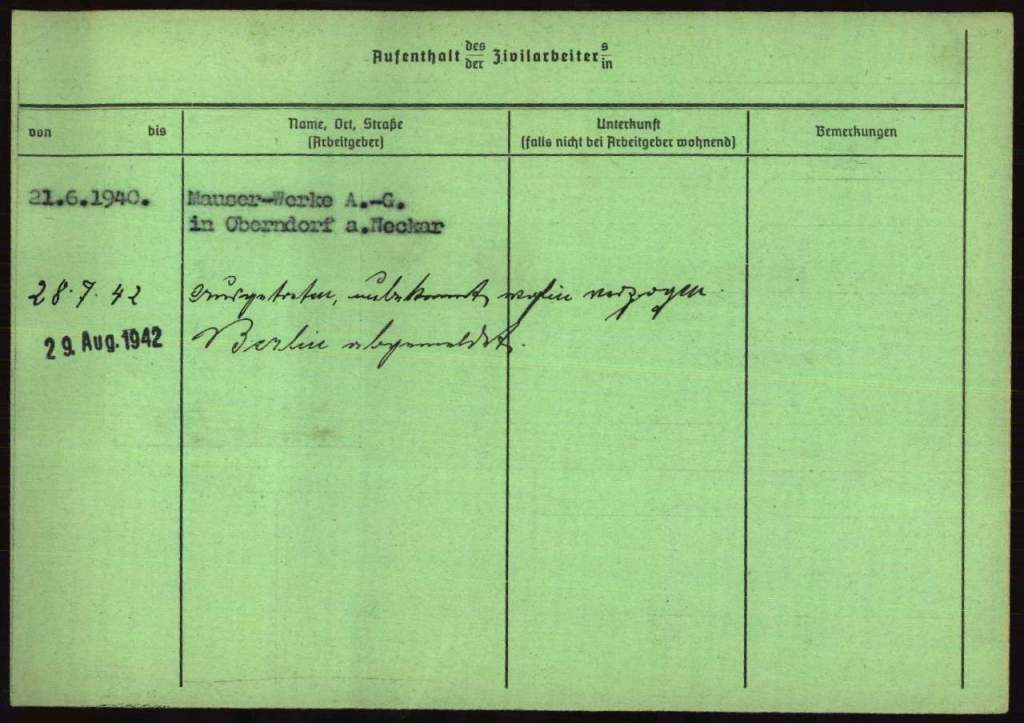 Aufenthalt des/der Zivilarbeiters/in
von bis
Name, Ort, Straße
(Arbeitgeber)
Unterkunft
(falls nicht bei Arbeitgeber wohnend)
Bemerkungen
21.6.1940. Mauser-Werke A.-G.
in Oberndorf a.Neckar
28.7.42 Ausgetreten, unbekannt, wohin verzogen.
29. Aug. 1942 Berlin abgemeldet.